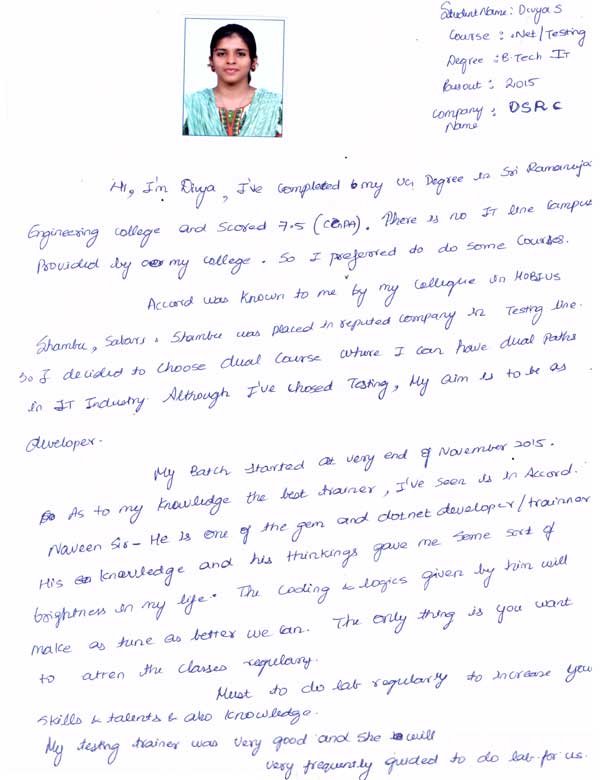 Student Name: Divya S
Course : .Net/Testing
Degree : B.Tech IT
Passout : 2015
Company Name : DSRC
Hi, I'm Divya, I've completed my UG Degree in Sri Ramanujar
Engineering college and Scored 7.5 (CGPA). There is no IT line Campus
Provided by my college. So I preferred to do some Courses.
Accord was known to me by my Collegue in MOBIUS
Shambu, Salari. Shambu was placed in reputed company in Testing line.
So I decided to choose dual Course where I can have dual paths
in IT Industry. Although I've chosed Testing, My aim is to be as
developer.
My Batch started at very end of November 2015.
As to my knowledge the best trainer, I've seen is in Accord.
Naveen Sir - He is one of the gem and dotnet developer/trainner
His knowledge and his thinkings gave me some sort of
brightness in my life. The coding & logics given by him will
make as tune as better we can. The only thing is you want
to atten the classes regulary.
Must to do lab regularly to increase you
skills & talents & also knowledge.
My testing trainer was very good and she will
very frequently guided to do lab for us.